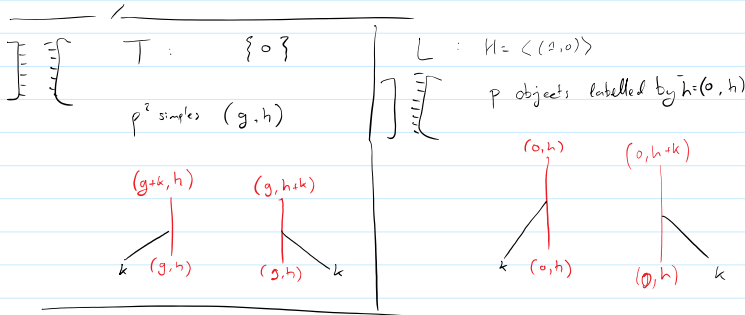 T : {0}
p² simples (g,h)
(g+k, h)
(g, h+k)
k
(g,h)
(g,h)
k
L : H = <(1,0)>
p objects labelled by h̄=(0, h)
(0,h)
(0,h+k)
k
(0,h)
(0,h)
k